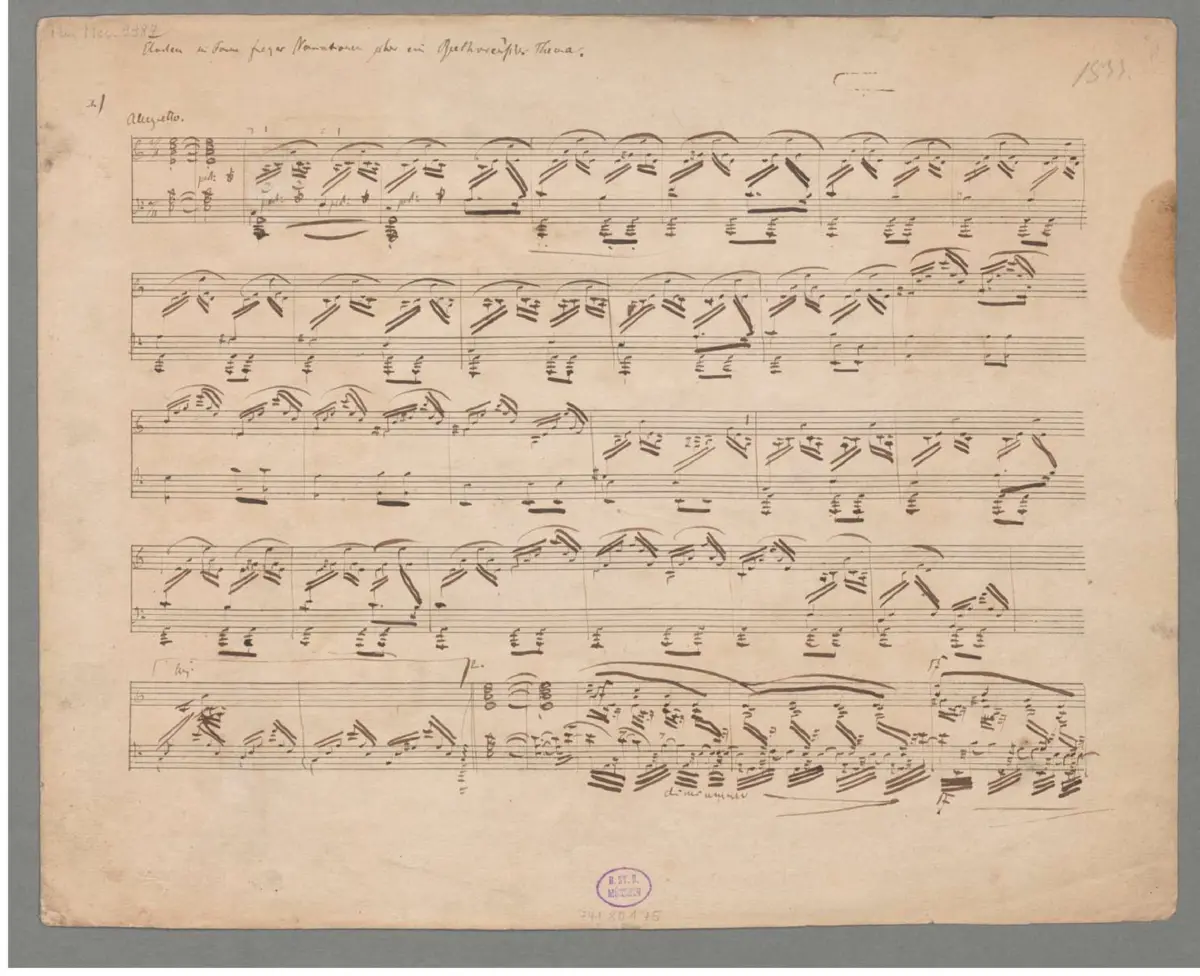 Mus. Mscr. 9987
Etuden in Form freyer Variationen über ein Beethovensches Thema.
1833.
Allegretto.
ped:
ped: ped: ped:
1. 2.
diminuendo
B. ST. B.
MÜNCHEN